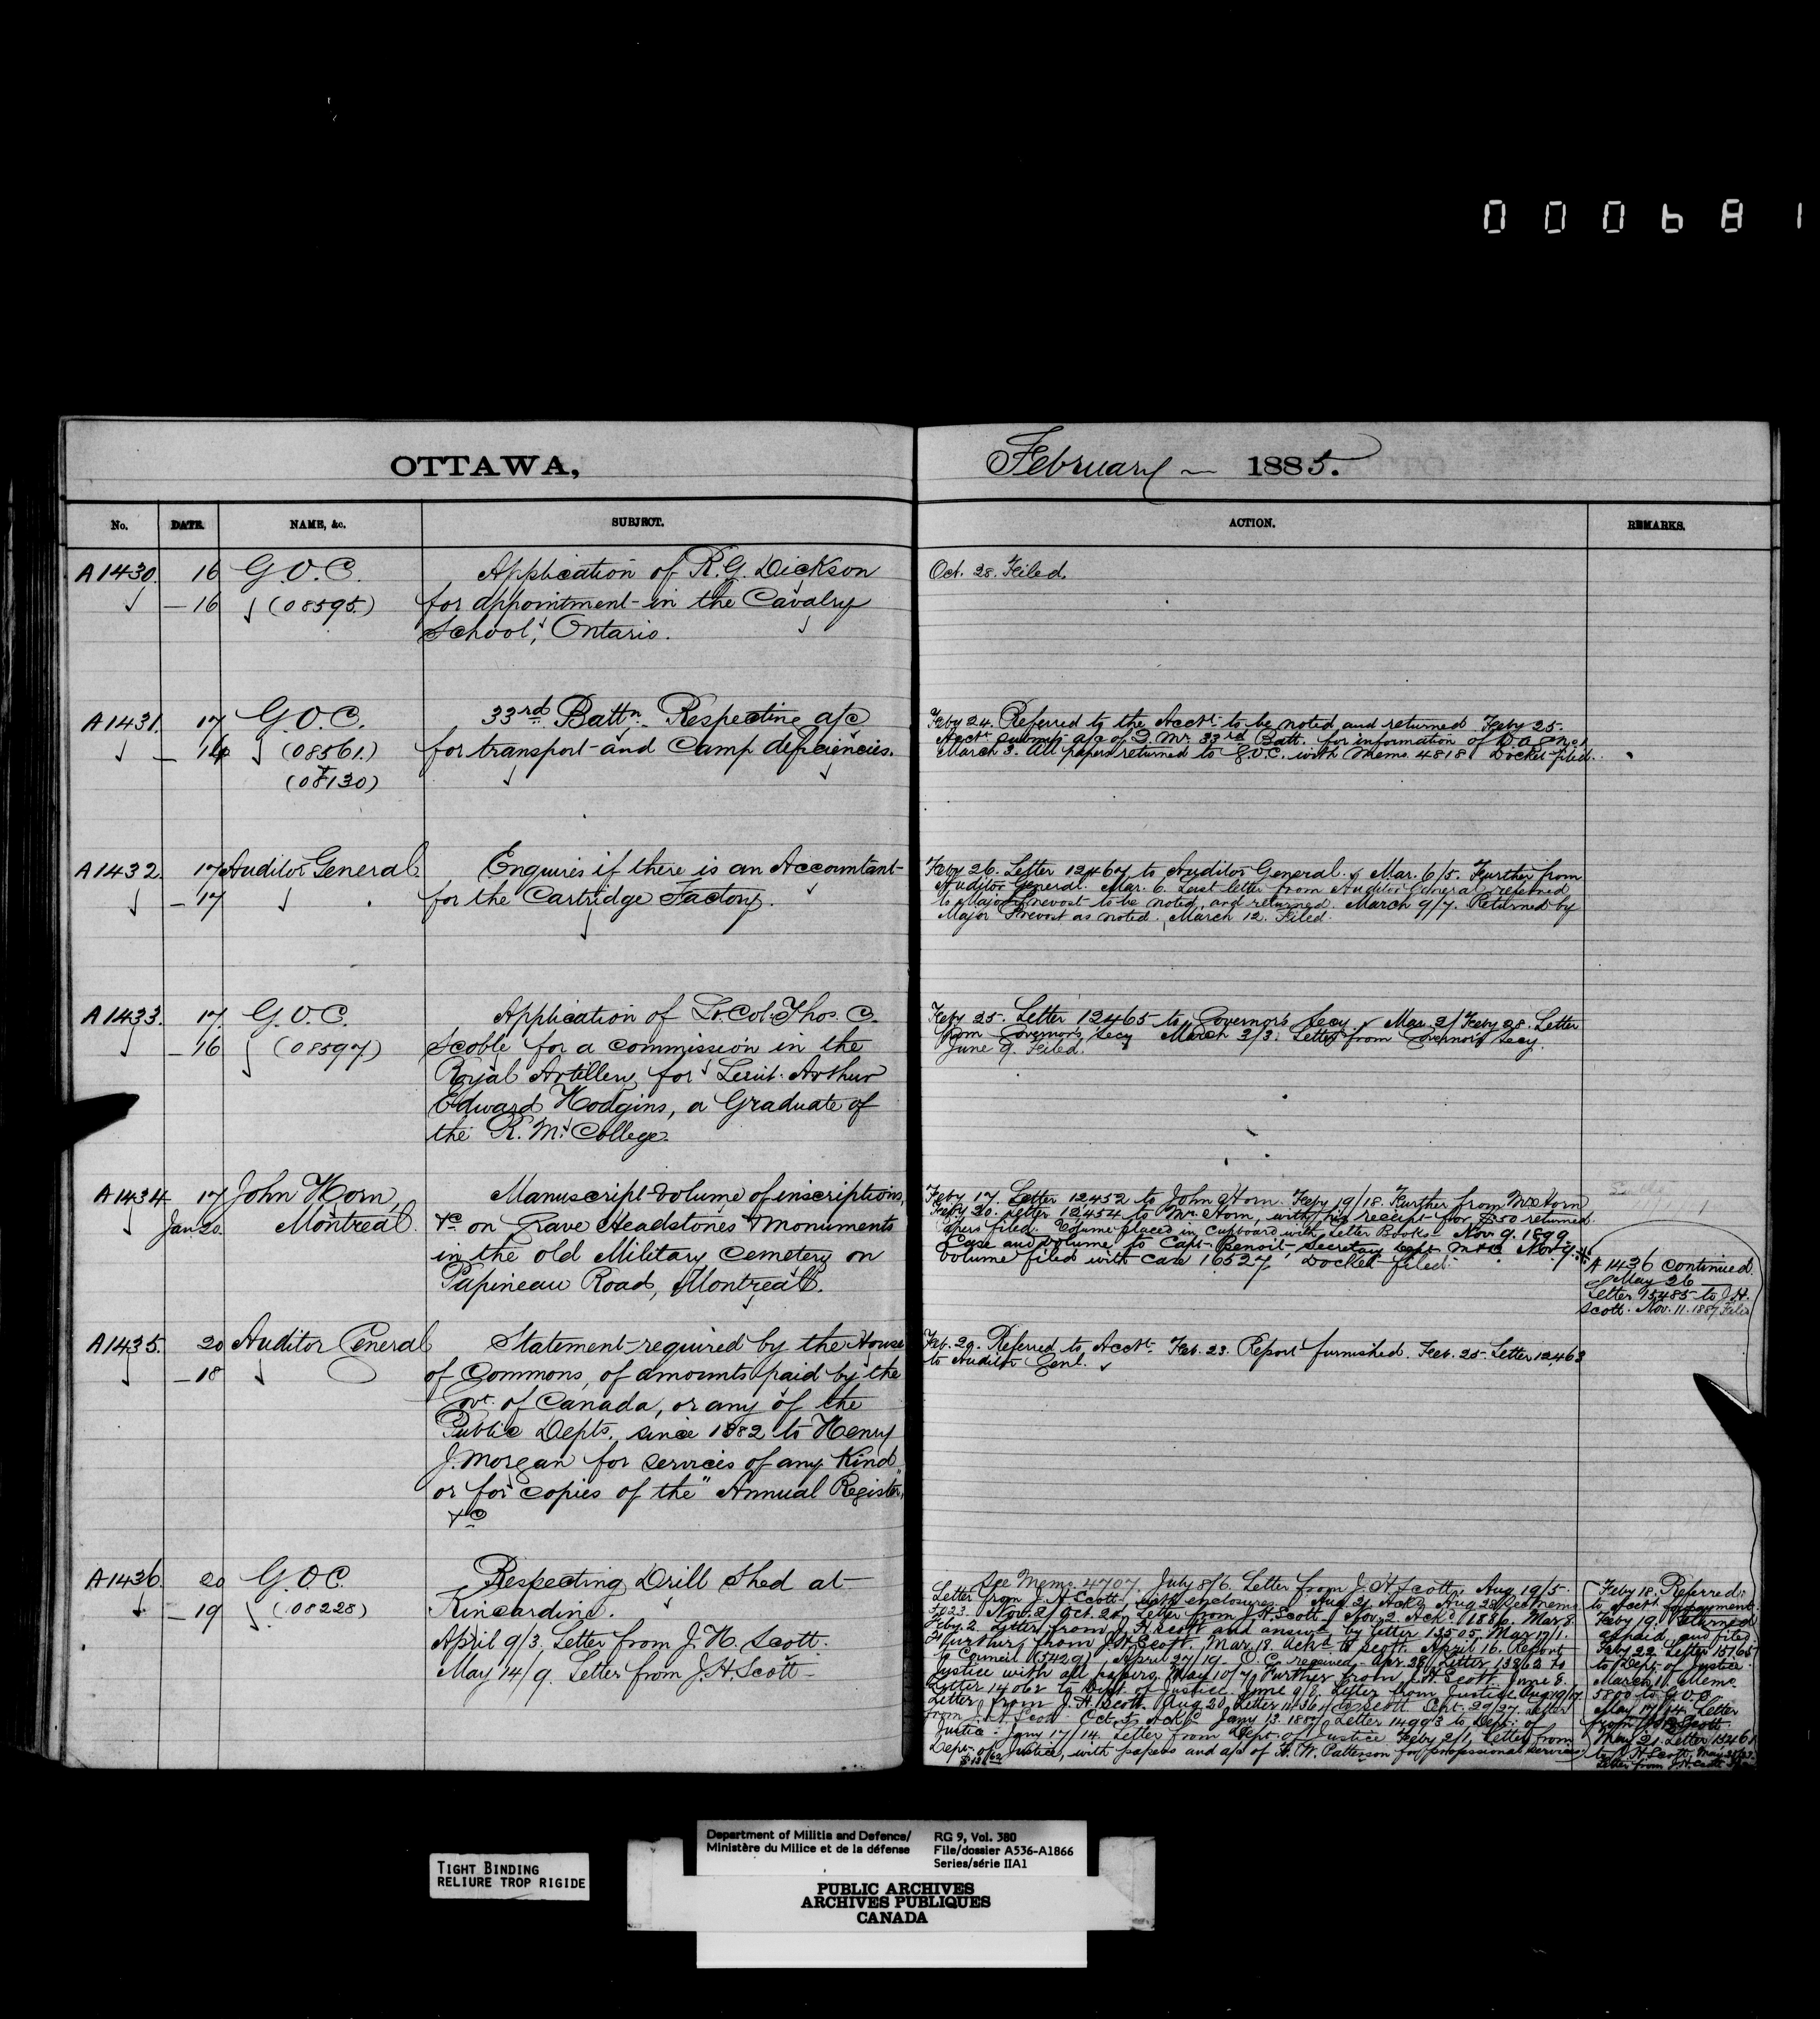 000681
OTTAWA,
February — 1885.
No. DATE. NAME, &c. SUBJECT. ACTION. REMARKS.
A1430. 16 G.O.C. Application of R.G. Dickson
— 16 (08595.) for appointment in the Cavalry
School, Ontario.
Oct. 28. Filed.
A1431. 17 G.O.C. 33rd Battn. Respecting a/c
— 14 (08561.) for transport and Camp deficiencies.
(08130)
Feby 24. Referred to the Acct. to be noted and returned Feby 25.
Acct. submits a/c of Q.Mr. 33rd Batt. for information of D.A.G. No 1
March 3. All papers returned to G.O.C. with Memo. 4818 Docket filed.
A1432. 17 Auditor General Enquires if there is an Accountant
— 17 for the Cartridge Factory.
Feby 26. Letter 12467 to Auditor General. Mar. 6/5. Further from
Auditor General. Mar. 6. Last letter from Auditor General referred
to Major Prevost to be noted, and returned. March 9/7. Returned by
Major Prevost as noted. March 12. Filed.
A1433. 17. G.O.C. Application of Lt. Col. Thos. C.
— 16 (08597) Scoble for a commission in the
Royal Artillery for Lieut. Arthur
Edward Hodgins, a Graduate of
the R. M. College.
Feby 25. Letter 12465 to Governor's Secy. Mar. 2/Feby 28. Letter
from Governor's Secy March 3/3. Letter from Governor's Secy.
June 9. Filed.
A1434 17 John Horn, Manuscript Volume of inscriptions,
Jan 20. Montreal. &c on Grave Headstones & monuments
in the old Military Cemetery on
Papineau Road, Montreal.
Feby 17. Letter 12452 to John Horn. Feby 19/18. Further from Mr. Horn
Feby 20. Letter 12454 to Mr. Horn, with his receipt for $50 returned.
Papers filed. Volume placed in Cupboard with Letter Books. Nov 9. 1899
Case and volume to Capt. Benoit Secretary Dept M&D. Nov 9.
Volume filed with case 16527 Docket filed.
A 1436 continued.
May 26
Letter 15485 to J.H.
Scott. Nov. 11. 1887 Filed
A1435. 20 Auditor General Statement required by the House
— 18 of Commons, of amounts paid by the
Govt. of Canada, or any of the
Public Depts. since 1882 to Henry
J. Morgan for services of any Kind
or for copies of the "Annual Register,"
&c
Feb. 20. Referred to Acct. Feb. 23. Report furnished. Feb. 25. Letter 12463
to Auditor Genl.
A1436. 20 G.O.C. Respecting Drill Shed at
— 19 (08228) Kincardine.
April 9/3. Letter from J. H. Scott.
May 14/9. Letter from J. H. Scott
See Memo. 4707. July 8/6. Letter from J. H. Scott. Aug 19/5.
Letter from J. H. Scott, with enclosures. Aug. 21 Ackd. Aug 28 See Memo
5023. Nov. 2/Oct. 20, Letter from J. H. Scott. Nov. 2. Ackd. 1886. Mar 8.
Feby. 2 Letter from J. H. Scott and answd by letter 13505. Mar 17/1.
Further from J. H. Scott. Mar. 18. Ackd to Scott. April 16. Report
to Council (5429). April 27/19. O.C. received. Apr. 28. Letter 13862 to
Justice with all papers. May 10/7. Further from J. H. Scott. June 8.
Letter 14062 to Dept. of Justice. June 9/8. Letter from Justice Aug 19/17.
Letter from J. H. Scott. Aug 20. Letter to Scott. Sept. 29/27. Letter
from J. H. Scott. Oct. 5. Ackd. Jany 13. 1887. Letter 14993 to Dept. of
Justice. Jany 17/14. Letter from Dept. of Justice. Feby 2/1. Letter from
Dept. of Justice, with papers and a/c of H. W. Patterson for professional services
Feby 18. Referred
to Acct. for payment.
Feby 19. Returned
as paid, and filed
Feby 22 Letter 15165
to Dept. of Justice.
March 11. Memo.
5800 to G.O.C.
May 17/14. Letter
from J. H. Scott
May 21. Letter 15461
to J. H. Scott.
Letter from J. H. Scott
TIGHT BINDING
RELIURE TROP RIGIDE
Department of Militia and Defence/
Ministère du Milice et de la défense
RG 9, Vol. 380
File/dossier A536-A1866
Series/série IIA1
PUBLIC ARCHIVES
ARCHIVES PUBLIQUES
CANADA